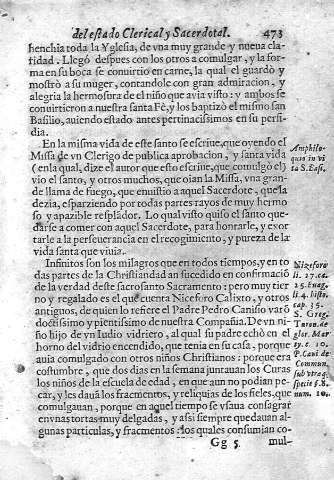 del estado Clerical, y Sacerdotal. 473
henchia toda la Yglesia, de vna muy grande y nueua cla-
ridad. Llegó despues con los otros a comulgar, y la for-
ma en su boca se conuirtio en carne, la qual el guardò y
mostrò a su muger, contandole con gran admiracion, y
alegria la hermosura de el niño que auia visto: y ambos se
conuirtieron a nuestra santa Fè, y los baptizò el mismo san
Basilio, auiendo estado antes pertinacissimos en su perfi-
dia.
En la misma vida de este santo se escriue, que oyendo el
Missa de vn Clerigo de publica aprobacion, y santa vida
(en la qual, dize el autor que esto escriue, que comulgò el)
vio el santo, y otros muchos, que oian la Missa, vna gran-
de llama de fuego, que enuistio a aquel Sacerdote, que la
dezia, esparziendo por todas partes rayos de muy hermo
so y apazible resplãdor. Lo qual visto quiso el santo que-
darse a comer con aquel Sacerdote, para honrarle, y exor
tarle a la perseuerancia en el recogimiento, y pureza de la
vida santa que viuia.
Amphilo-
quio in vi
ta S. Basi.
Infinitos son los milagros que en todos tiempos, y en to
das partes de la Christiandad an sucedido en confirmaciõ
de la verdad deste sacrosanto Sacramento: pero muy tier
no y regalado es el que cuenta Niceforo Calixto, y otros
antiguos, de quien lo refiere el Padre Pedro Canisio varõ
doctissimo y pientissimo de nuestra Compañia. De vn ni-
ño hijo de vn Iudio vidriero, al qual su padre echò en el
horno del vidrio encendido, que tenia en su casa, porque
auia comulgado con otros niños Christianos: porque era
costumbre, que dos dias en la semana juntauan los Curas
los niños de la escuela de edad, en que aun no podian pe-
car, y les dauã los fragmentos, y reliquias de los fieles, que
comulgauan, porque en aquel tiempo se vsaua consagrar
en vnas tortas muy delgadas, y assi siempre quedauan al-
gunas particulas, y fragmentos: los quales consumian co-
Nizeforo
li. 17. ca.
25. Euag.
li 4. histo.
cap. 35.
S. Greg.
Turon. de
glor. Mar
ty. c. 10.
P. Cani de
Commun.
sub vtraq.
specie c. 8.
num. 10.
Gg 5 mul-